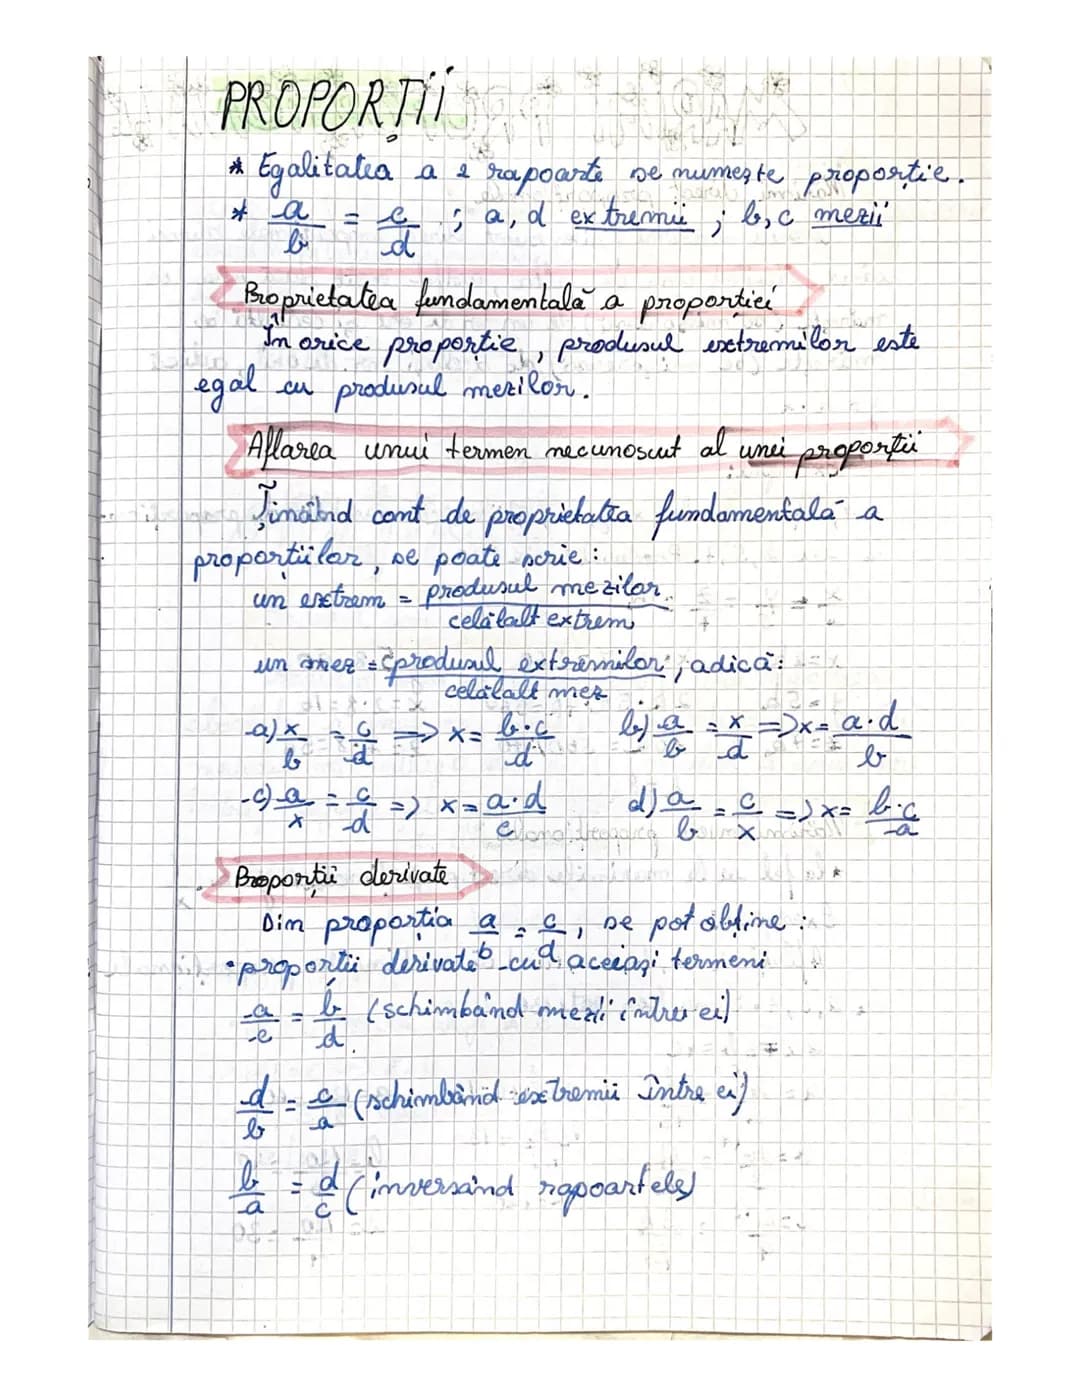 PROPORȚII
* Egalitatea a 2 rapoarte se numește proporție.
* a/b = c/d ; a, d extremii ; b, c mezii
Proprietatea fundamentală a proporției
În orice proporție, produsul extremilor este
egal cu produsul mezilor.
Aflarea unui termen necunoscut al unei proporții
Ținând cont de proprietatea fundamentală a
proporțiilor, se poate scrie:
un extrem = produsul mezilor / celălalt extrem
un mez = produsul extremilor / celălalt mez, adică:
a) x/b = c/d => x = b·c/d b) a/b = x/d => x = a·d/b
c) a/x = c/d => x = a·d/c d) a/b = c/x => x = b·c/a
Proporții derivate
Din proporția a/b = c/d, se pot obține:
• proporții derivate cu aceiași termeni
a/c = b/d (schimbând mezii între ei)
d/b = c/a (schimbând extremii între ei)
b/a = d/c (inversând rapoartele)